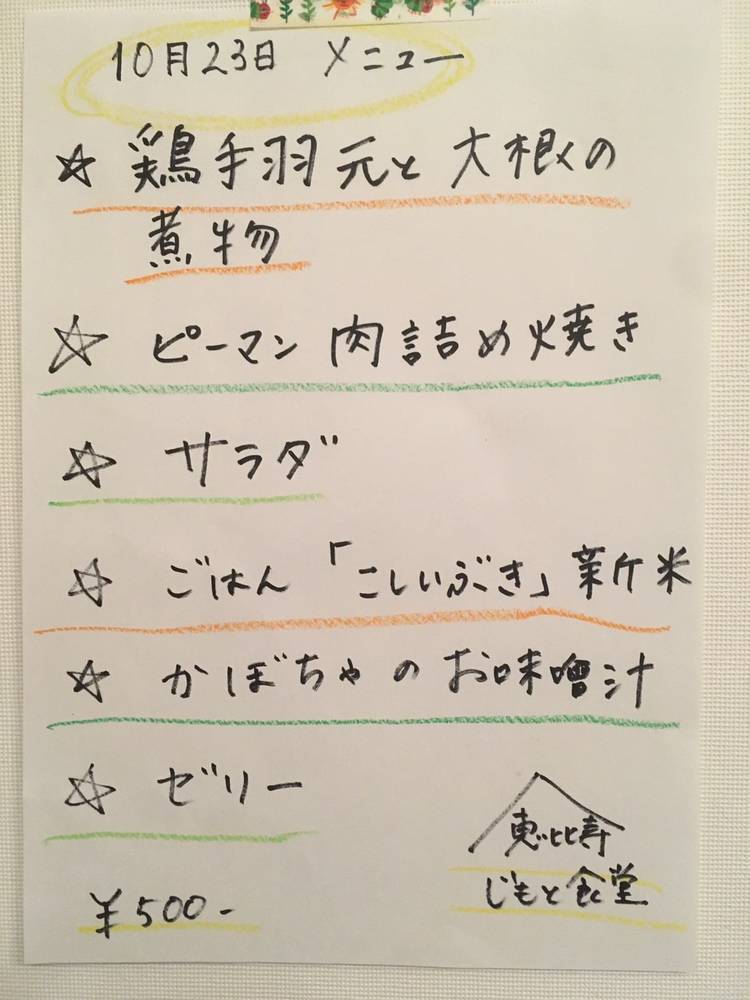 10月23日 メニュー
☆ 鶏手羽元と大根の
煮物
☆ ピーマン肉詰め焼き
☆ サラダ
☆ ごはん「こしいぶき」新米
☆ かぼちゃのお味噌汁
☆ ゼリー
恵比寿
じもと食堂
¥500-